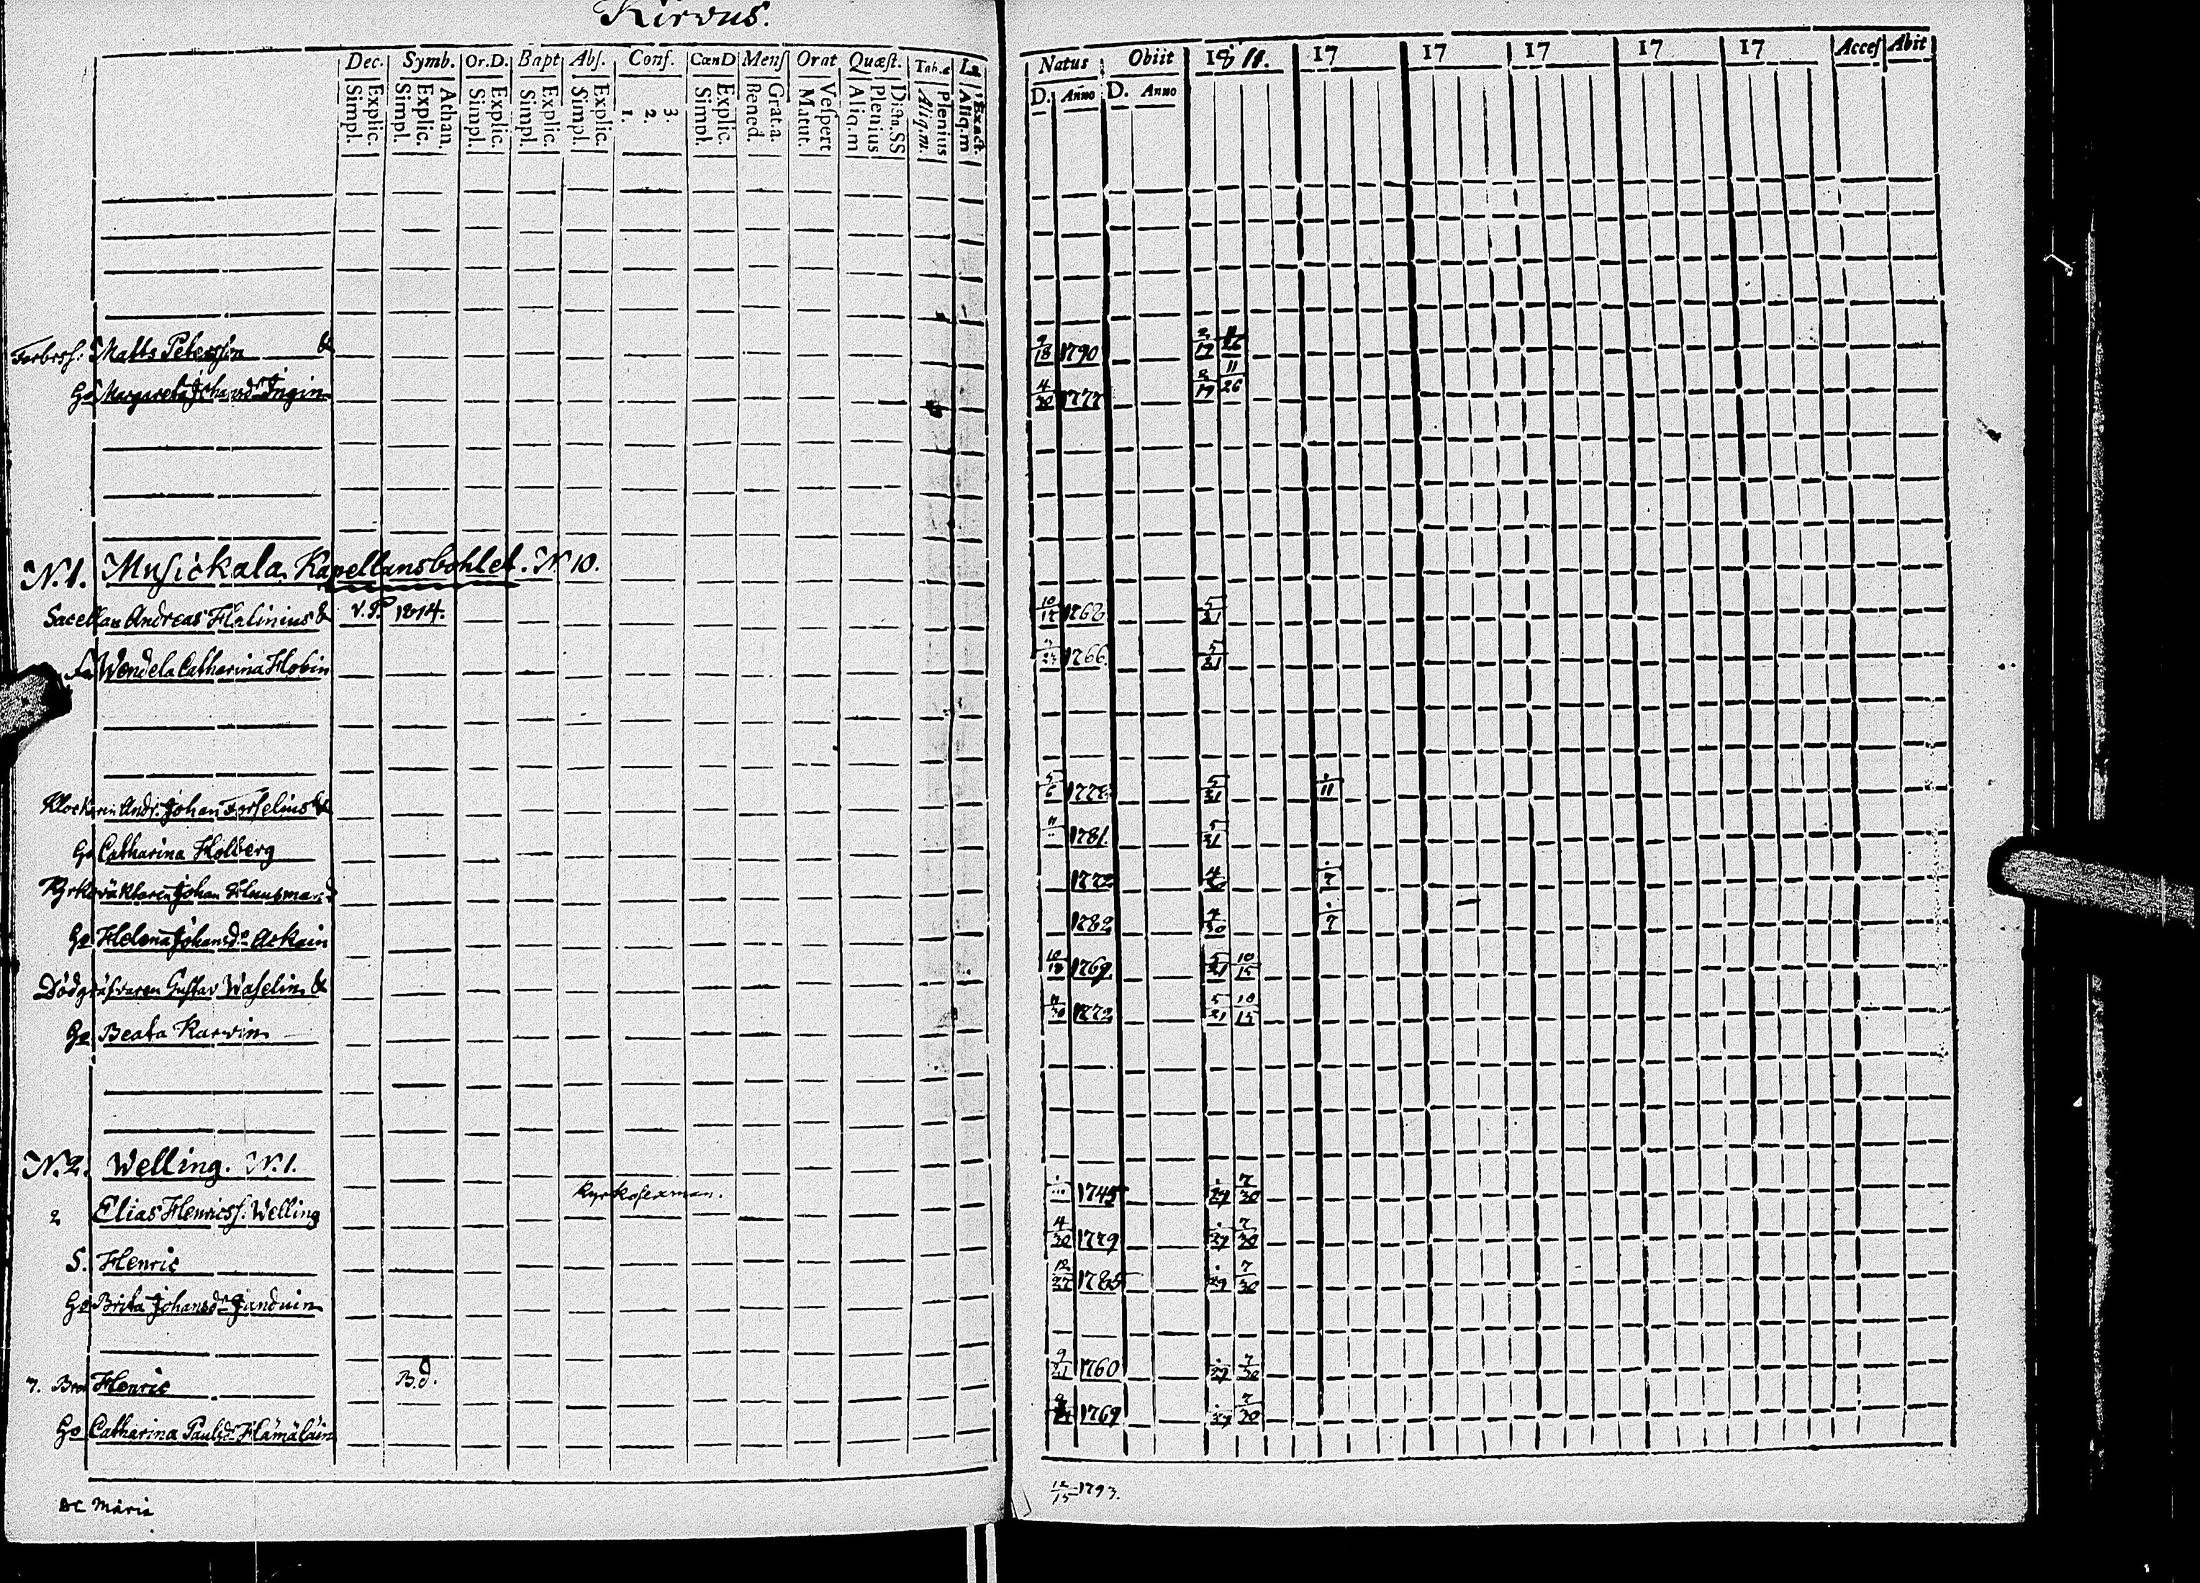 Kirvus.
Dec. Symb. Or.D. Bapt Abs. Conf. CœnD Mens Orat Quæst. Tab.æ
Explic. Simpl. Athan. Explic. Simpl. Explic. Simpl. Explic. Simpl. Explic. Simpl. 3. 2. 1. Explic. Simpl. Grat.a. Bened. Vespert Matut. Dicta.SS Plenius Aliq.m Plenius Aliq.m. Exact. Aliq.m
Natus Obiit 1811. 17 17 17 17 17 Acces Abit
D. Anno D. Anno
Matts Petersson & 9/18 1790 2/19 11/26
Ho Margareta Johansd. Ingin 4/30 1777 2/19 11/26
N.1. Musickala Kapellansbohlet. N 10.
Sacellan Andreas Halinius & V.P. 1814. 5/21
Wendela Catharina Hobin 1766. 5/21
Klockaren Andr. Johan Forselius & 5/6 5/21 /11
Ho Catharina Holberg 1781. 5/21
Kyrkoväktaren Johan 1772 /7
Ho Helena Johansd. Askain 1782 4/30 /7
Dödgräfvaren Gustav Waselin & 10/18 1769 5/21 10/15
Ho Beata Karvin 1772 5/21 10/15
N.2. Welling. N.1.
Kyrkosexman.
2 Elias Henricss. Welling 1745 /29 7/30
S. Henric 4/30 1779 /29 7/30
Ho Brita Johansd. Junduin 12/27 1785 /29 7/30
7. Bror Henric B.d. 9/21 1760 /29 7/30
Ho Catharina Paulsd. Hämäläin 1769 /29 7/30
Maria 12/15 1793.